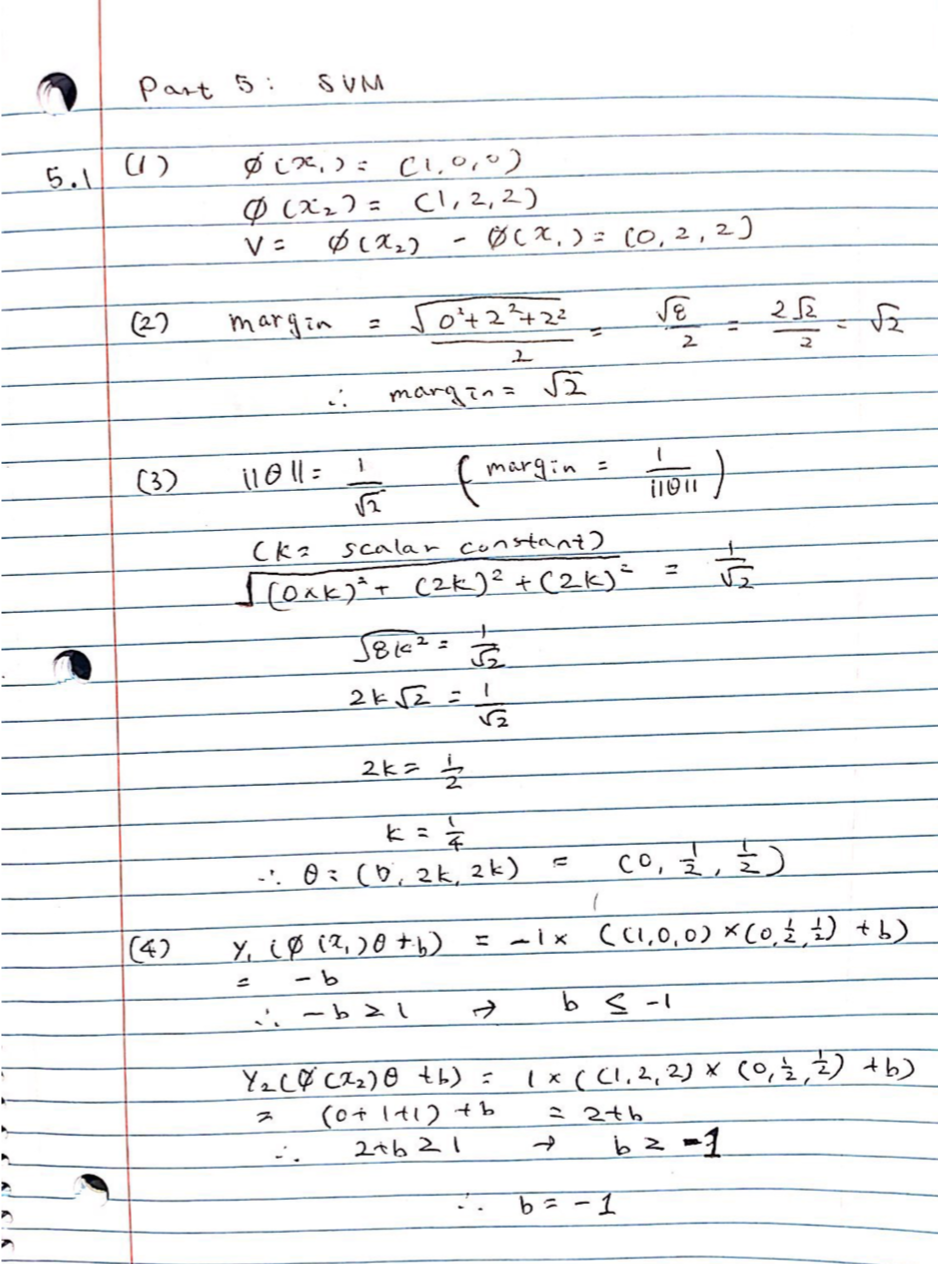 Part 5: SVM
5.1 (1) ∅(x₁) = (1,0,0)
∅(x₂) = (1,2,2)
V = ∅(x₂) - ∅(x₁) = (0,2,2)
(2) margin = √(0²+2²+2²)/2 = √8/2 = 2√2/2 = √2
∴ margin = √2
(3) ||θ|| = 1/√2 (margin = 1/||θ||)
(k = scalar constant)
√((0×k)²+(2k)²+(2k)²) = 1/√2
√8k² = 1/√2
2k√2 = 1/√2
2k = 1/2
k = 1/4
∴ θ = (0, 2k, 2k) = (0, 1/2, 1/2)
(4) Y₁(∅(x₁)θ+b) = -1×((1,0,0)×(0,1/2,1/2)+b)
= -b
∴ -b ≥ 1 → b ≤ -1
Y₂(∅(x₂)θ+b) = 1×((1,2,2)×(0,1/2,1/2)+b)
= (0+1+1)+b = 2+b
∴ 2+b ≥ 1 → b ≥ -1
∴ b = -1